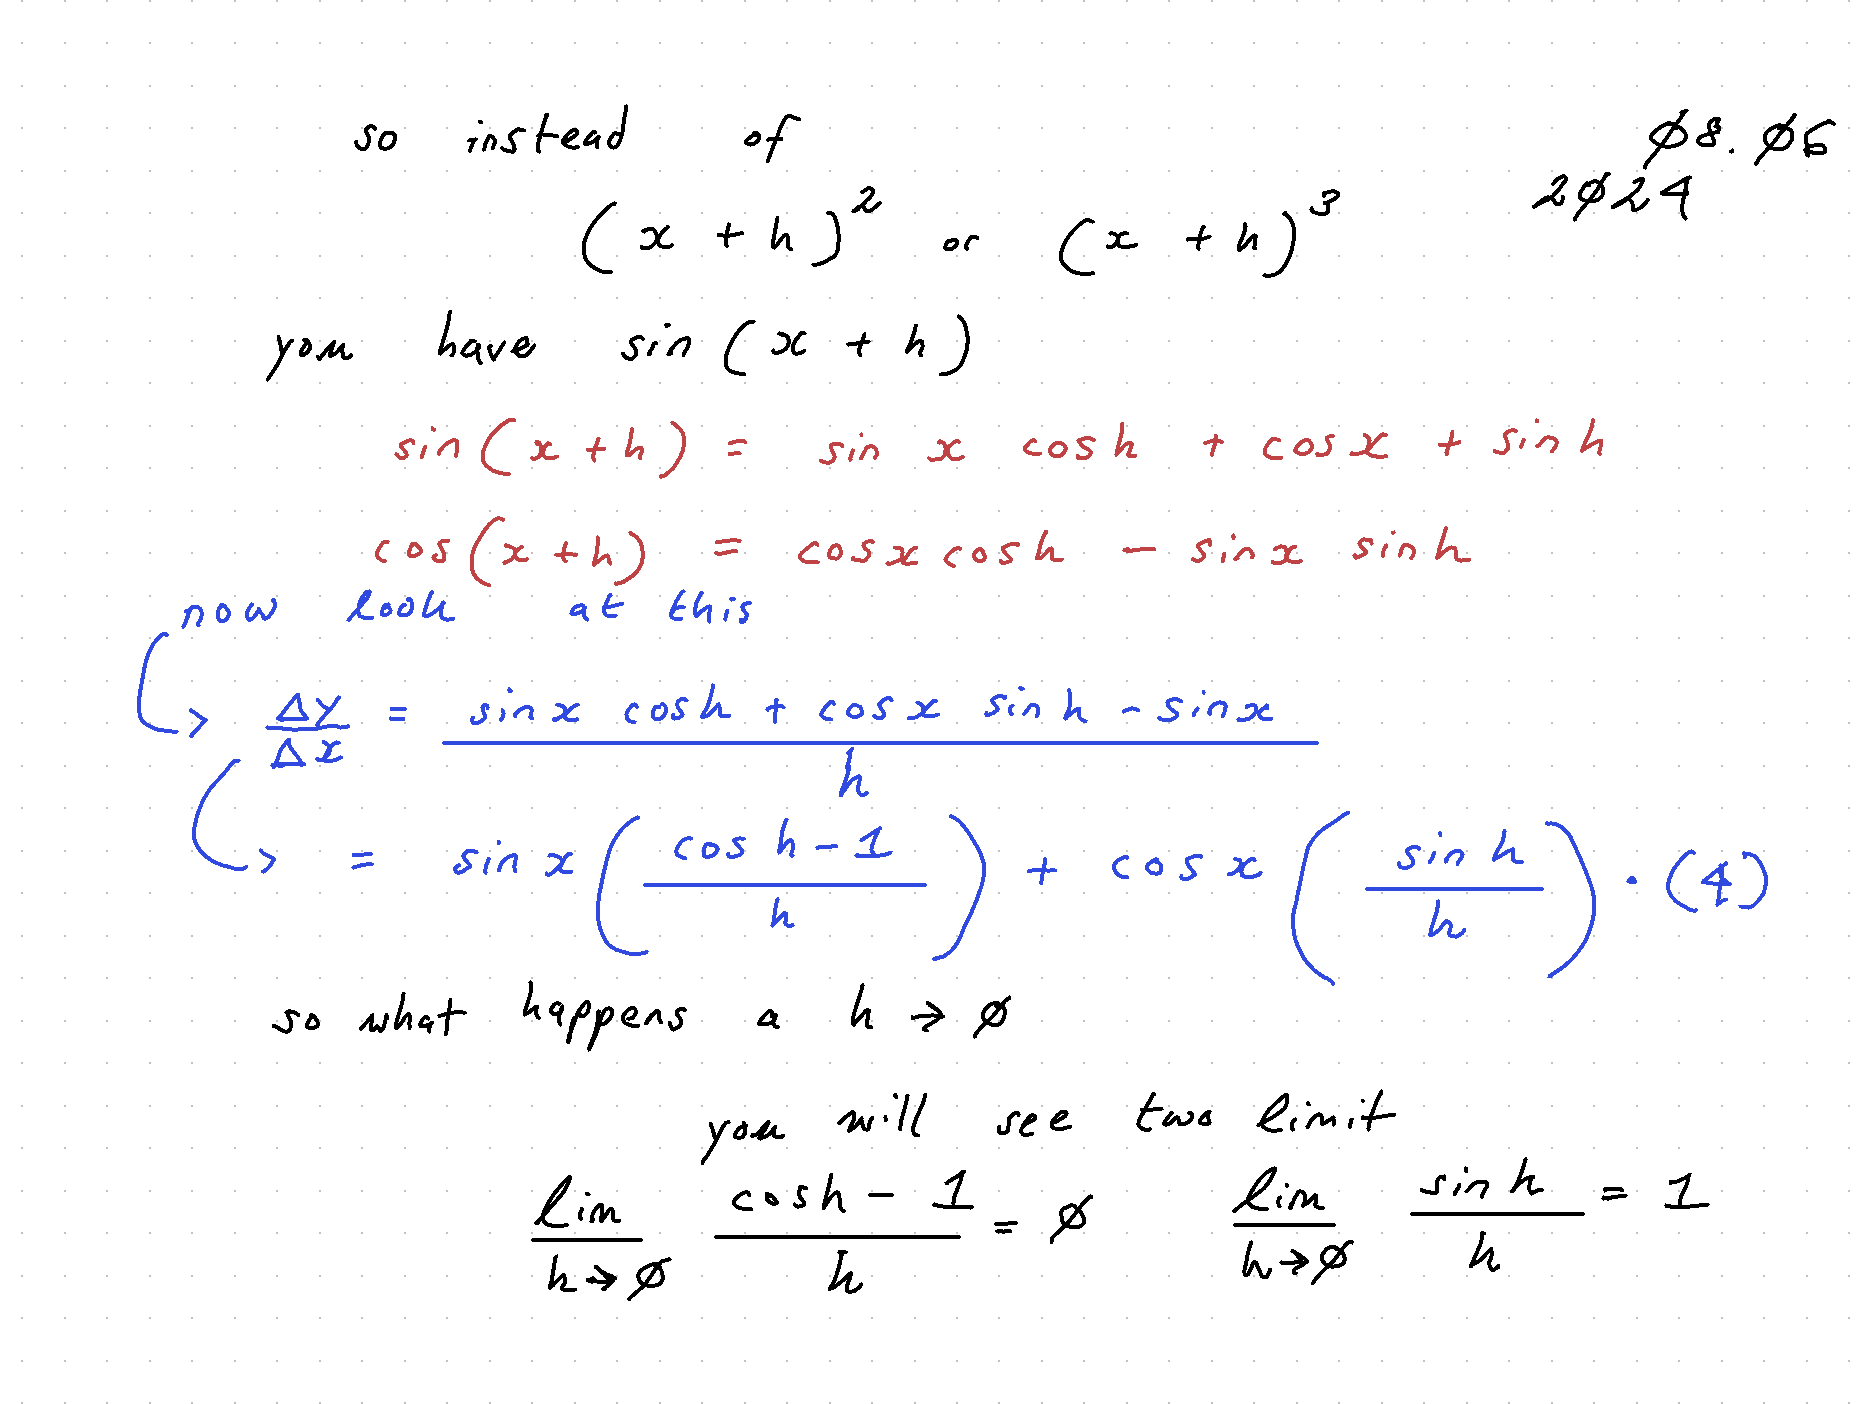 so instead of
ø8.ø6
2ø24
(x + h)² or (x + h)³
you have sin (x + h)
sin(x+h) = sin x cosh + cosx + sinh
cos(x+h) = cosx cosh - sinx sinh
now look at this
Δy/Δx = (sinx cosh + cosx sinh - sinx)/h
= sin x ((cos h - 1)/h) + cos x ((sin h)/h) . (4)
so what happens a h → ø
you will see two limit
lim h→ø (cosh - 1)/h = ø lim h→ø (sinh)/h = 1